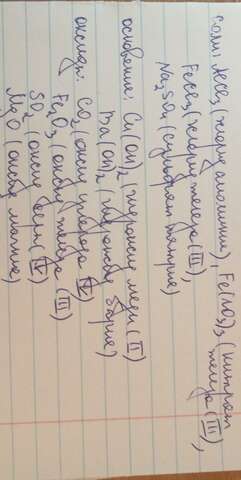 Соли: AlCl₃ (хлорид алюминия), Fe(NO₃)₃ (нитрат
железа (III)),
FeCl₃ (хлорид железа (III)),
Na₂SO₄ (сульфат натрия)
основание: Cu(OH)₂ (гидроксид меди (II))
Ba(OH)₂ (гидроксид бария)
оксиды: CO₂ (оксид углерода (IV))
Fe₂O₃ (оксид железа (III))
SO₂ (оксид серы (IV))
MgO (оксид магния)